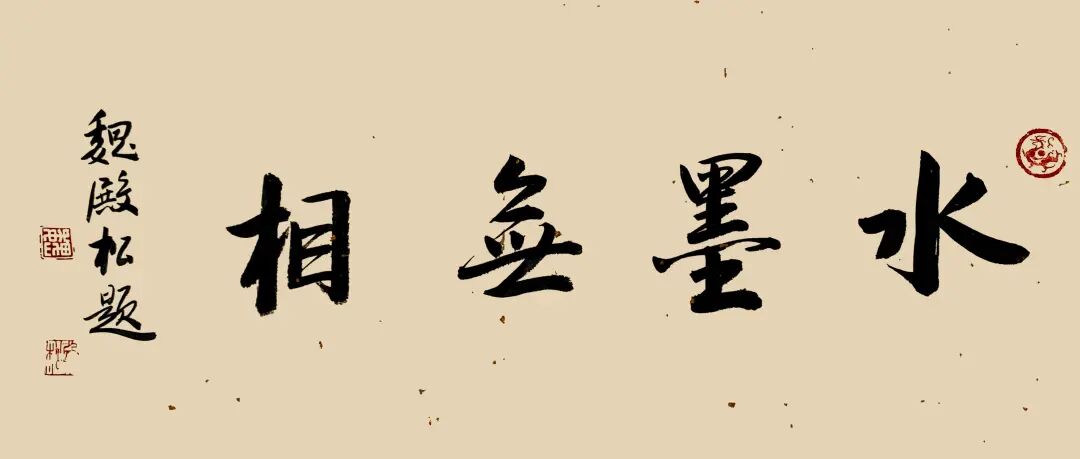 水墨無相
魏殿松题